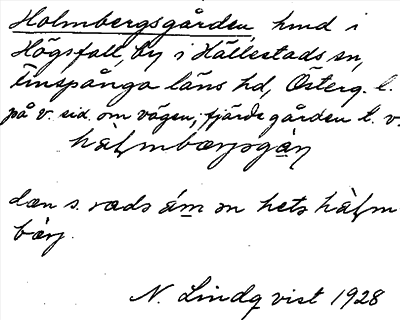 Holmbergsgården, hmd i
Högsfall, by i Hällestads sn,
Finspånga läns hd, Österg. l.
på v. sid. om vägen; fjärde gården t. v.
hòḷmbærjsgạ̀ṇ
dæn s. ræds ǻm ən hets hòḷm
bærj.
N. Lindqvist 1928